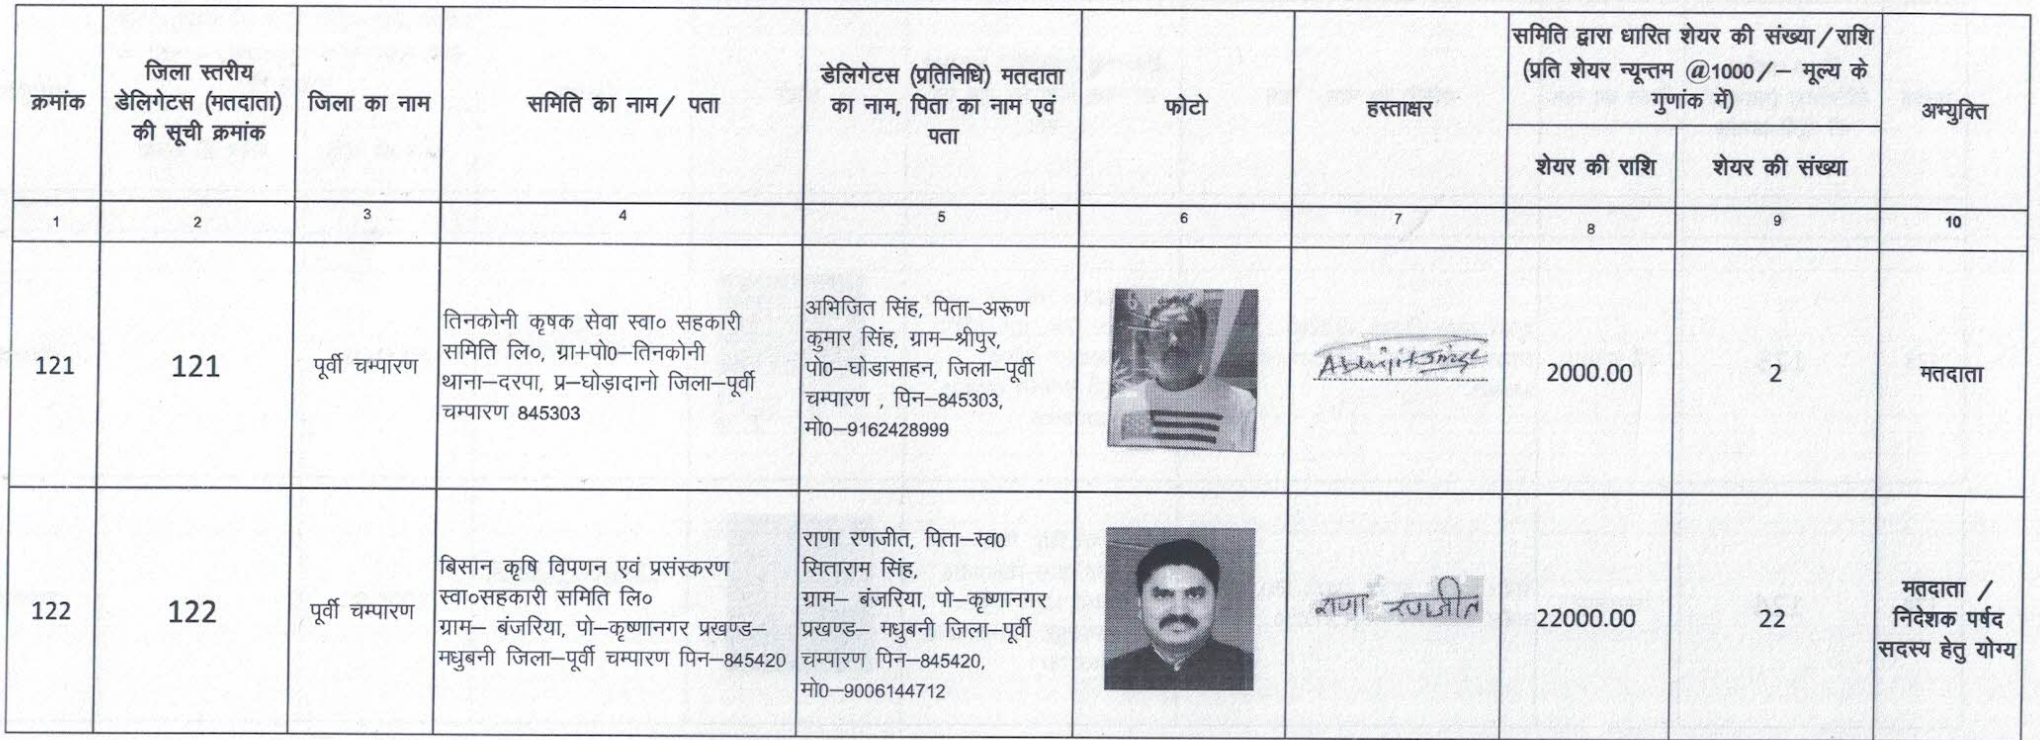 क्रमांक
जिला स्तरीय
डेलिगेटस (मतदाता)
की सूची क्रमांक
जिला का नाम
समिति का नाम/ पता
डेलिगेटस (प्रतिनिधि) मतदाता
का नाम, पिता का नाम एवं
पता
फोटो
हस्ताक्षर
समिति द्वारा धारित शेयर की संख्या/राशि
(प्रति शेयर न्यून्तम @1000/– मूल्य के
गुणांक में)
शेयर की राशि
शेयर की संख्या
अभ्युक्ति
1
2
3
4
5
6
7
8
9
10
121
121
पूर्वी चम्पारण
तिनकोनी कृषक सेवा स्वा० सहकारी
समिति लि०, ग्रा+पो0–तिनकोनी
थाना–दरपा, प्र–घोड़ादानो जिला–पूर्वी
चम्पारण 845303
अभिजित सिंह, पिता–अरूण
कुमार सिंह, ग्राम–श्रीपुर,
पो0–घोडासाहन, जिला–पूर्वी
चम्पारण , पिन–845303,
मो0–9162428999
Abhijit Singh
2000.00
2
मतदाता
122
122
पूर्वी चम्पारण
बिसान कृषि विपणन एवं प्रसंस्करण
स्वा०सहकारी समिति लि०
ग्राम– बंजरिया, पो–कृष्णानगर प्रखण्ड–
मधुबनी जिला–पूर्वी चम्पारण पिन–845420
राणा रणजीत, पिता–स्व0
सिताराम सिंह,
ग्राम– बंजरिया, पो–कृष्णानगर
प्रखण्ड– मधुबनी जिला–पूर्वी
चम्पारण पिन–845420,
मो0–9006144712
राणा रणजीत
22000.00
22
मतदाता /
निदेशक पर्षद
सदस्य हेतु योग्य